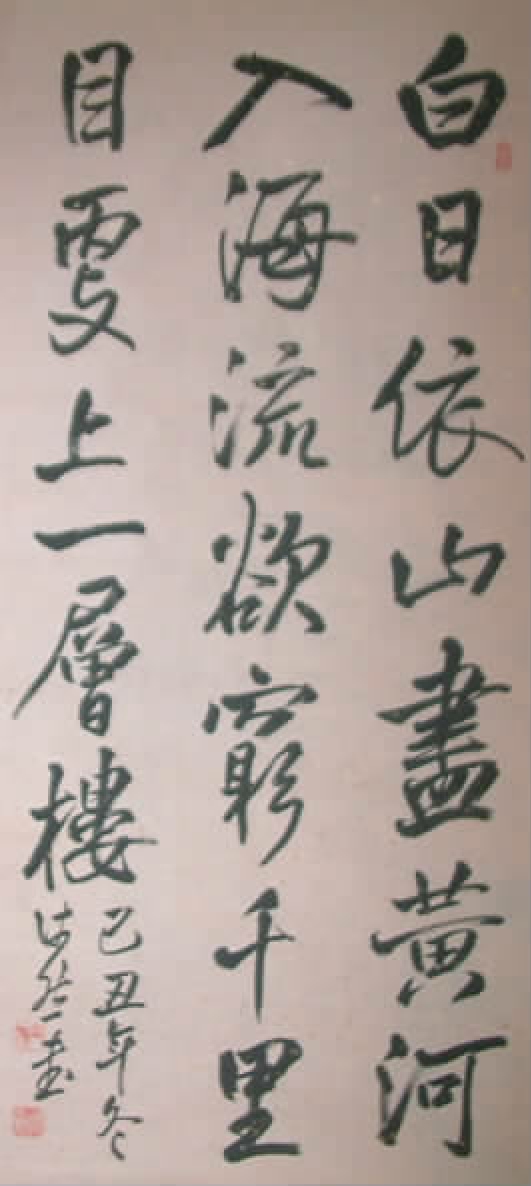 白日依山盡黃河
入海流欲窮千里
目更上一層樓
己丑年冬
書